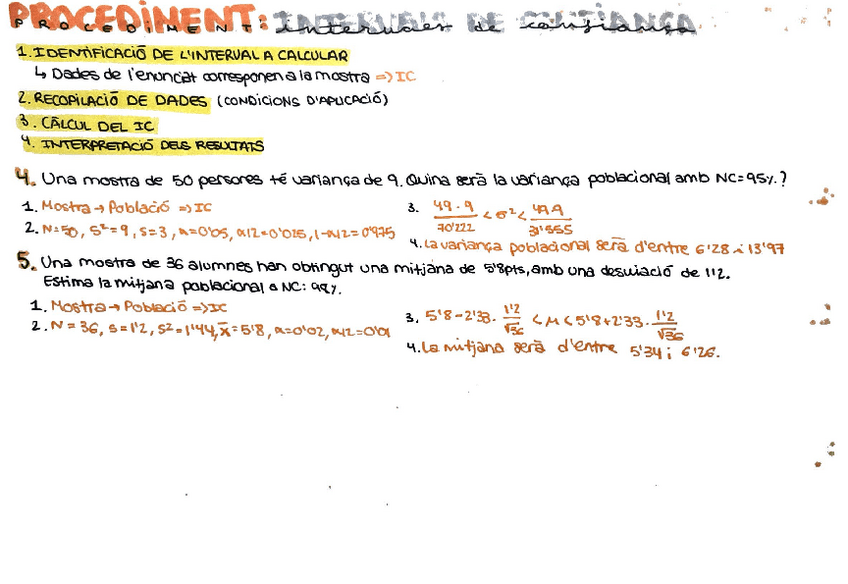 PROCEDIMENT: INTERVALS DE CONFIANÇA
1. IDENTIFICACIÓ DE L'INTERVAL A CALCULAR
↳ Dades de l'enunciat corresponen a la mostra => IC
2. RECOPILACIÓ DE DADES (CONDICIONS D'APLICACIÓ)
3. CÀLCUL DEL IC
4. INTERPRETACIÓ DELS RESULTATS
4. Una mostra de 50 persones té variança de 9. Quina serà la variança poblacional amb NC=95%?
1. Mostra → Població => IC
2. N=50, S²=9, S=3, α=0'05, α/2=0'025, 1-α/2=0'975
3. 49·9/70'222 < σ² < 49·9/31'555
4. La variança poblacional serà d'entre 6'28 i 13'97
5. Una mostra de 36 alumnes han obtingut una mitjana de 5'8pts, amb una desviació de 1'2.
Estima la mitjana poblacional a NC: 98%.
1. Mostra → Població => IC
2. N=36, s=1'2, s²=1'44, x̄=5'8, α=0'02, α/2=0'01
3. 5'8-2'33· 1'2/√36 < μ < 5'8+2'33· 1'2/√36
4. La mitjana serà d'entre 5'34 i 6'26.